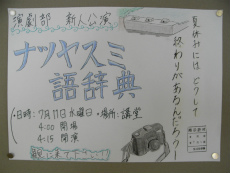 演劇部 新人公演
ナツヤスミ
語辞典
夏休みには、どうして
終わりがあるんだろう…
・日時:7月11日水曜日 ・場所:講堂
4:00 開場
4:15 開演